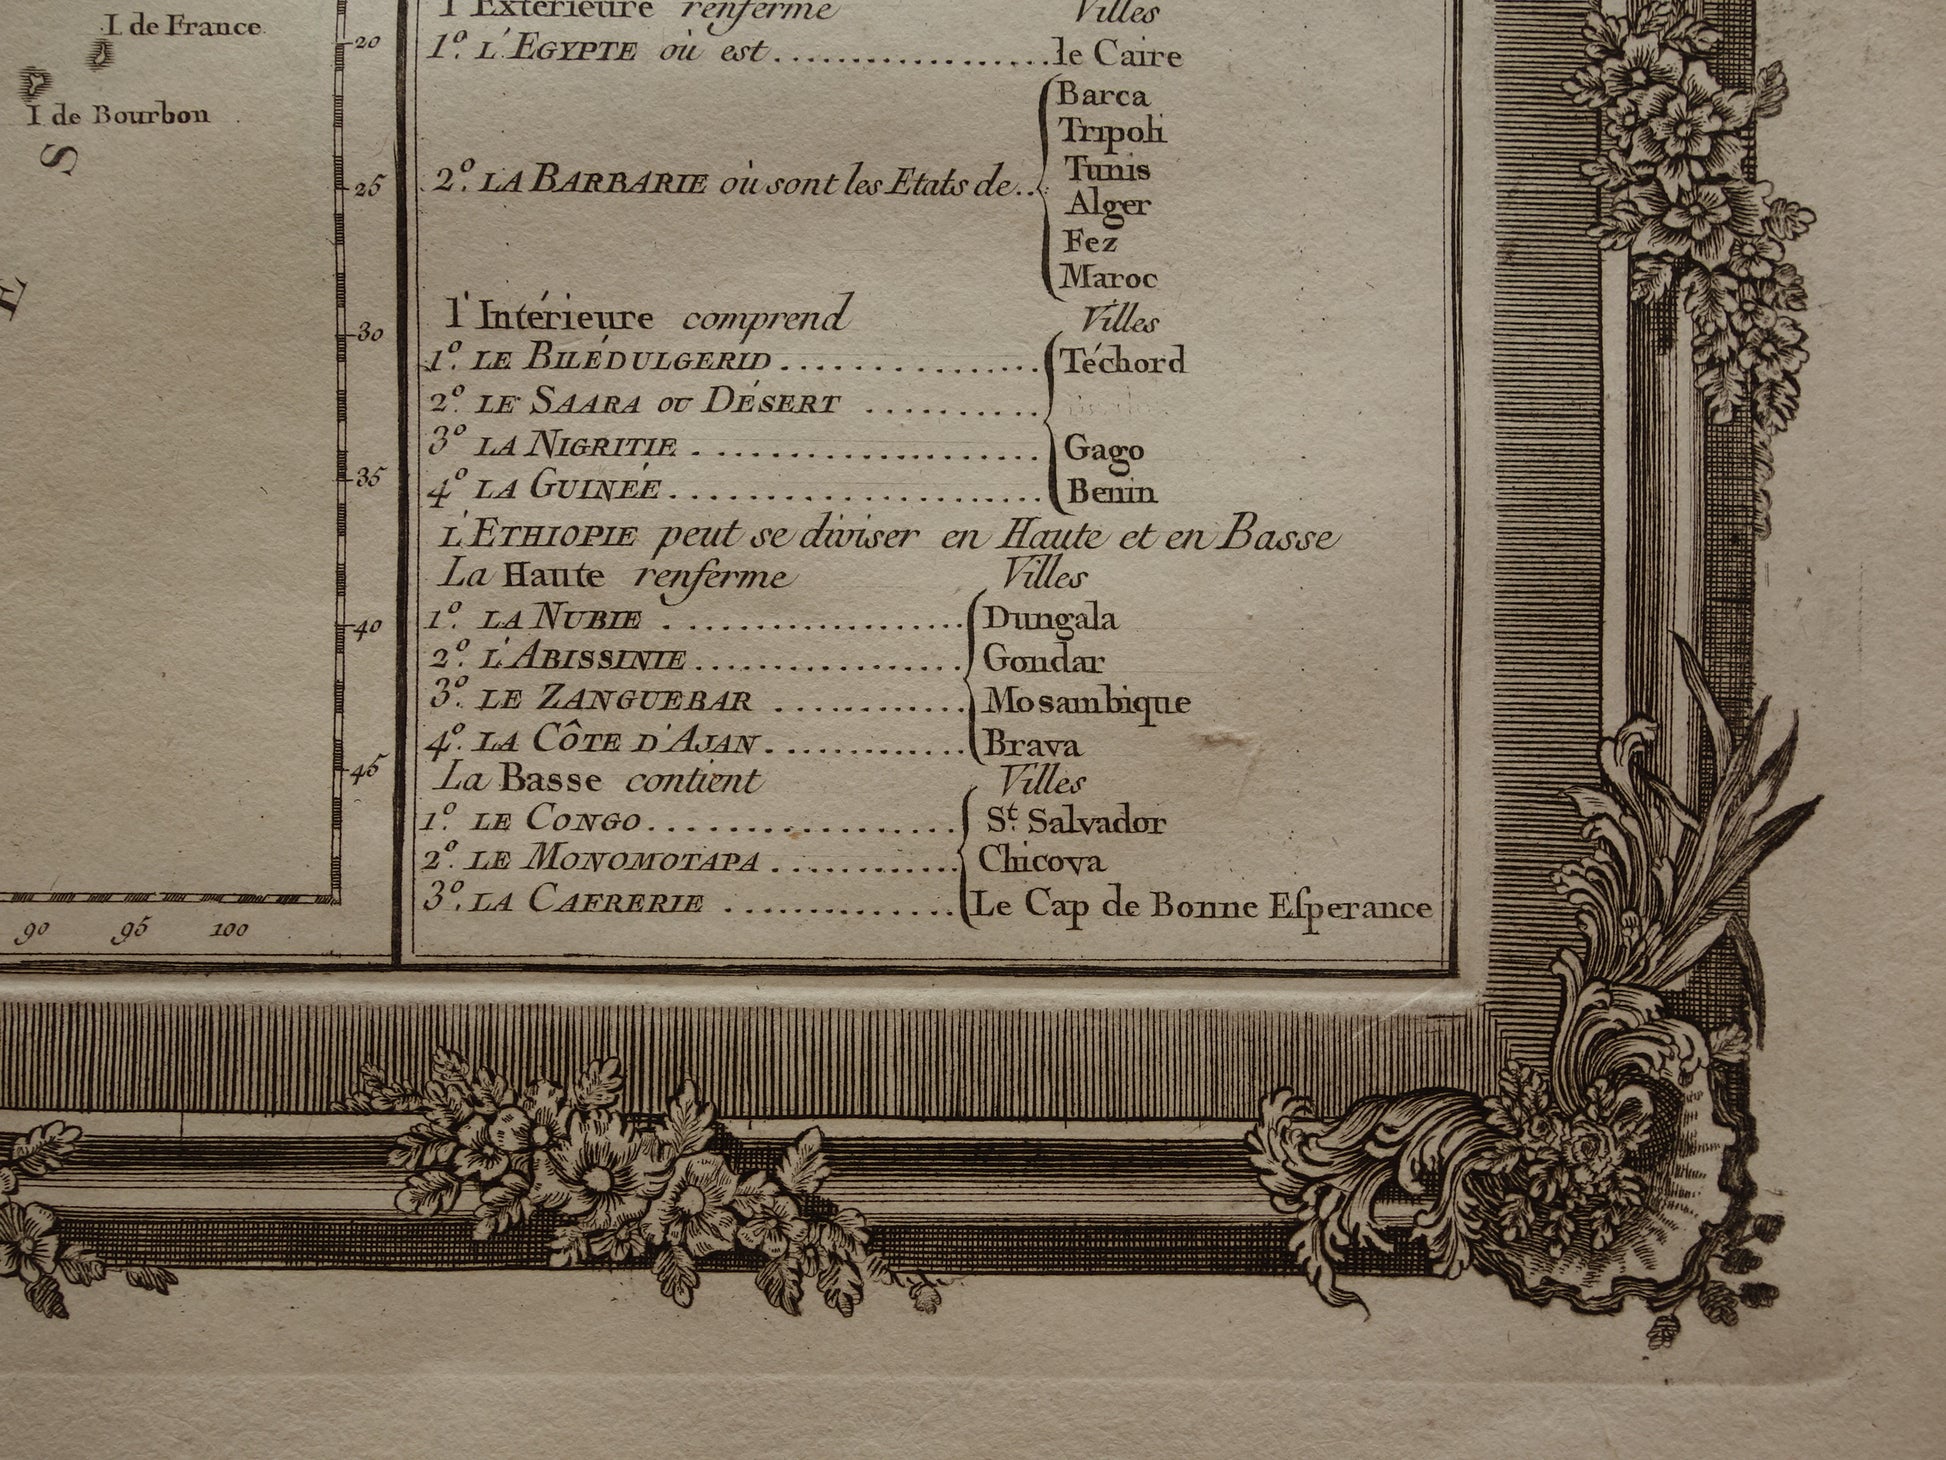 I. de France
I de Bourbon
S
E
20
25
30
35
40
45
90 95 100
l'Extérieure renferme Villes
1º. L'EGYPTE où est.................le Caire
2º. LA BARBARIE où sont les Etats de..
Barca
Tripoli
Tunis
Alger
Fez
Maroc
l'Intérieure comprend Villes
1º. LE BILÉDULGERID................Téchord
2º. LE SAARA OU DÉSERT ...........
3º LA NIGRITIE.....................Gago
4º LA GUINÉE......................Benin
L'ETHIOPIE peut se diviser en Haute et en Basse
La Haute renferme Villes
1º. LA NUBIE ..................Dungala
2º. L'ABISSINIE................Gondar
3º. LE ZANGUEBAR ............Mosambique
4º. LA CÔTE D'AJAN............Brava
La Basse contient Villes
1º. LE CONGO...................St. Salvador
2º. LE MONOMOTAPA............Chicova
3º. LA CAFRERIE ..............Le Cap de Bonne Eſperance